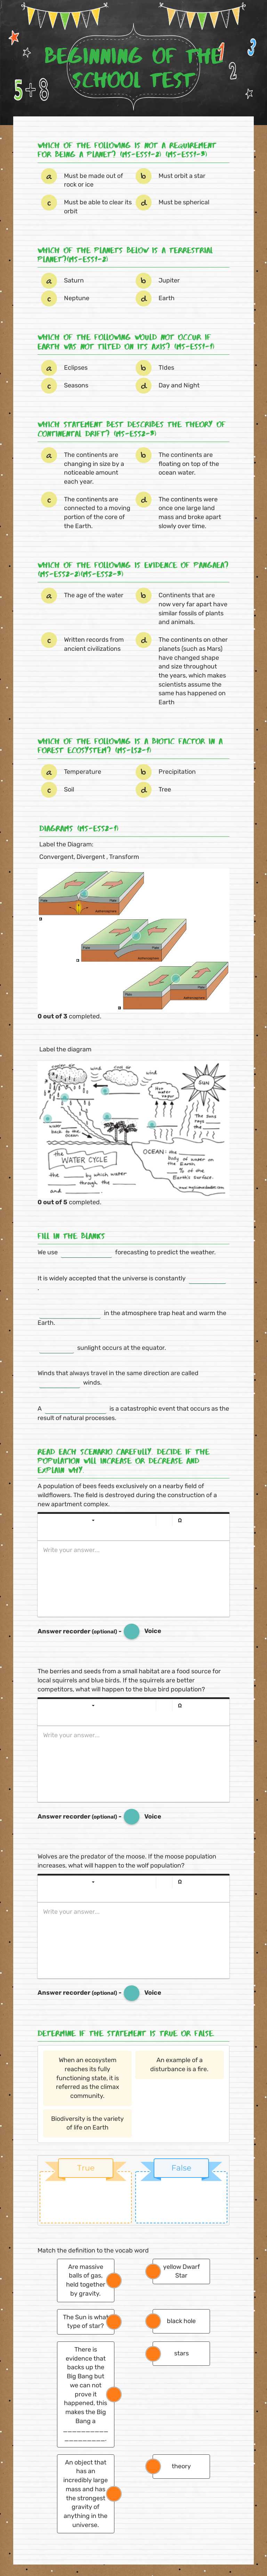 BEGINNING OF THE
SCHOOL TEST
1
2
3
5+8
WHICH OF THE FOLLOWING IS NOT A REQUIREMENT
FOR BEING A PLANET? (MS-ESS1-2) (MS-ESS1-3)
a Must be made out of
rock or ice
b Must orbit a star
c Must be able to clear its
orbit
d Must be spherical
WHICH OF THE PLANETS BELOW IS A TERRESTRIAL
PLANET?(MS-ESS1-2)
a Saturn
b Jupiter
c Neptune
d Earth
WHICH OF THE FOLLOWING WOULD NOT OCCUR IF
EARTH WAS NOT TILTED ON IT'S AXIS? (MS-ESS1-1)
a Eclipses
b Tides
c Seasons
d Day and Night
WHICH STATEMENT BEST DESCRIBES THE THEORY OF
CONTINENTAL DRIFT? (MS-ESS2-3)
a The continents are
changing in size by a
noticeable amount
each year.
b The continents are
floating on top of the
ocean water.
c The continents are
connected to a moving
portion of the core of
the Earth.
d The continents were
once one large land
mass and broke apart
slowly over time.
WHICH OF THE FOLLOWING IS EVIDENCE OF PANGAEA?
(MS-ESS2-2)(MS-ESS2-3)
a The age of the water
b Continents that are
now very far apart have
similar fossils of plants
and animals.
c Written records from
ancient civilizations
d The continents on other
planets (such as Mars)
have changed shape
and size throughout
the years, which makes
scientists assume the
same has happened on
Earth
WHICH OF THE FOLLOWING IS A BIOTIC FACTOR IN A
FOREST ECOSYSTEM? (MS-LS2-1)
a Temperature
b Precipitation
c Soil
d Tree
DIAGRAMS (MS-ESS2-1)
Label the Diagram:
Convergent, Divergent , Transform
Plate
Plate
Asthenosphere
Plate
Plate
Asthenosphere
Plate
Plate
Asthenosphere
0 out of 3 completed.
Label the diagram
wind
wind
Hot
water
vapor
SUN
The suns
rays
the
water
back to the
ocean
the
WATER CYCLE
the ____ by which water
through the
and
OCEAN: the
body of water on
the Earth,
% of the
Earth's surface.
0 out of 5 completed.
FILL IN THE BLANKS
We use ____ forecasting to predict the weather.
It is widely accepted that the universe is constantly ____
.
____ in the atmosphere trap heat and warm the
Earth.
____ sunlight occurs at the equator.
Winds that always travel in the same direction are called
____ winds.
A ____ is a catastrophic event that occurs as the
result of natural processes.
READ EACH SCENARIO CAREFULLY. DECIDE IF THE
POPULATION WILL INCREASE OR DECREASE AND
EXPLAIN WHY.
A population of bees feeds exclusively on a nearby field of
wildflowers. The field is destroyed during the construction of a
new apartment complex.
Ω
Write your answer...
Answer recorder (optional) - Voice
The berries and seeds from a small habitat are a food source for
local squirrels and blue birds. If the squirrels are better
competitors, what will happen to the blue bird population?
Ω
Write your answer...
Answer recorder (optional) - Voice
Wolves are the predator of the moose. If the moose population
increases, what will happen to the wolf population?
Ω
Write your answer...
Answer recorder (optional) - Voice
DETERMINE IF THE STATEMENT IS TRUE OR FALSE.
When an ecosystem
reaches its fully
functioning state, it is
referred as the climax
community.
An example of a
disturbance is a fire.
Biodiversity is the variety
of life on Earth
True
False
Match the definition to the vocab word
Are massive
balls of gas,
held together
by gravity.
yellow Dwarf
Star
The Sun is what
type of star?
black hole
There is
evidence that
backs up the
Big Bang but
we can not
prove it
happened, this
makes the Big
Bang a
___________
__________.
stars
An object that
has an
incredibly large
mass and has
the strongest
gravity of
anything in the
universe.
theory